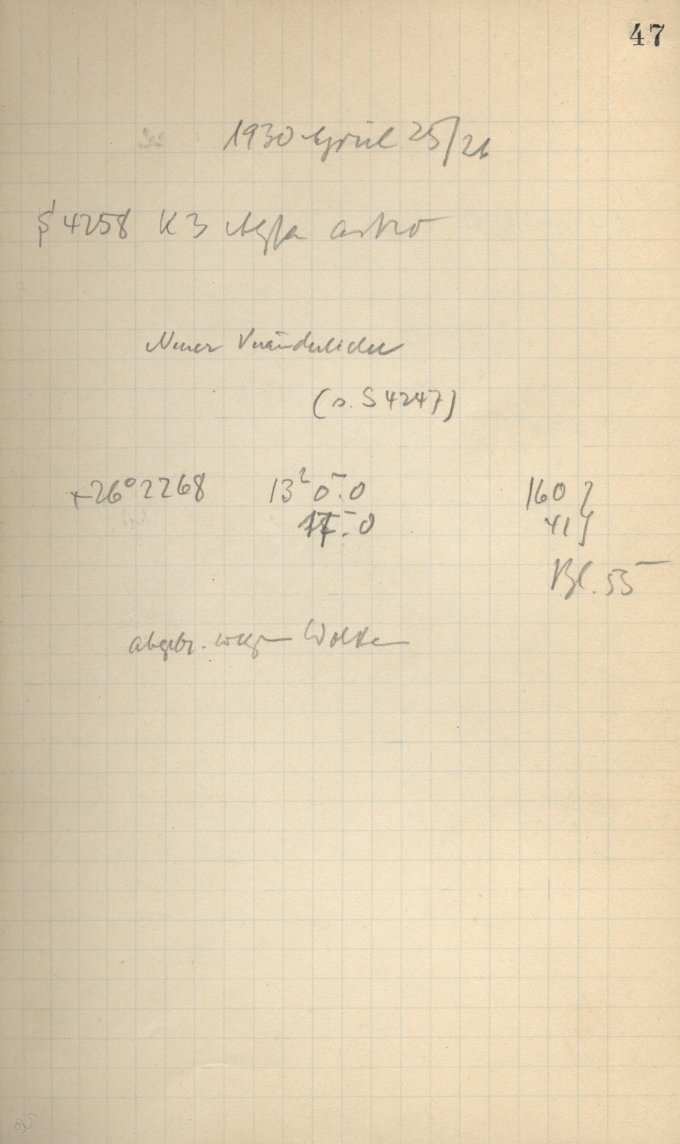 47
1930 April 25/26
S 4258 K 3 Agfa astro
Neuer Veränderlicher
(s. S 4247)
+26°2268 13ʰ 0ᵐ.0 160 }
17ᵐ.0 41 }
Bl. 55
abgebr. wegen Wolken